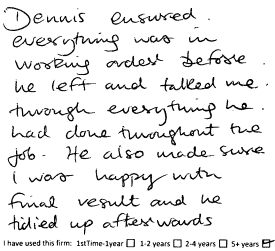 Dennis ensured.
everything was in
working order before.
he left and talked me.
through everything he.
had done throughout the
job. He also made sure
i was happy with
final result and he
tidied up afterwards
I have used this firm: 1stTime-1year ☐ 1-2 years ☐ 2-4 years ☐ 5+ years ☑